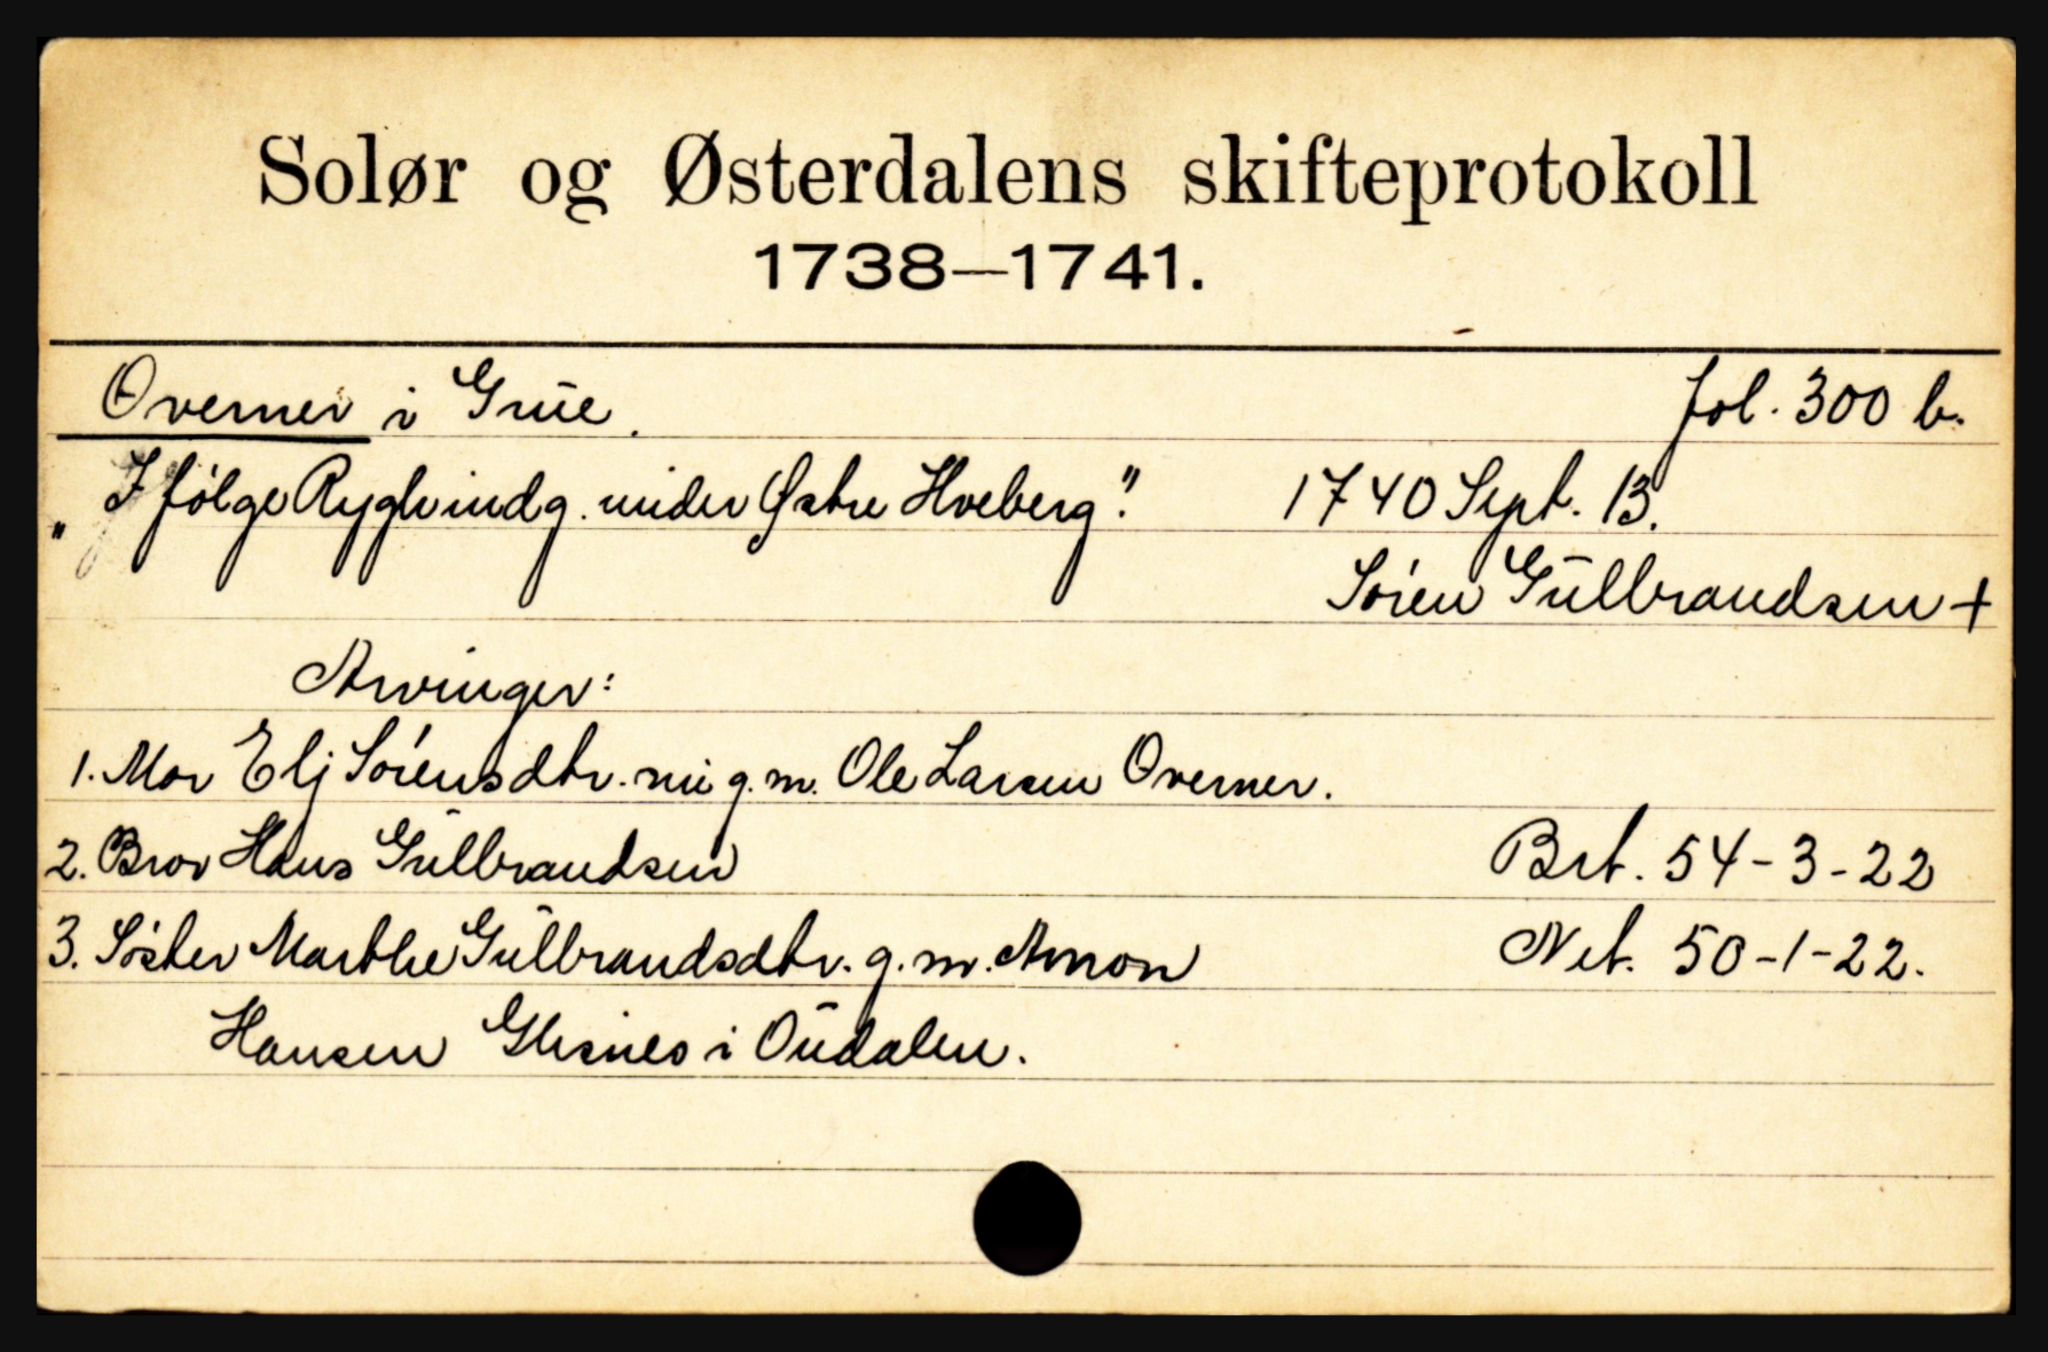 Solør og Østerdalens skifteprotokoll
1738—1741.
Overner i Grūe. fol. 300 b.
„I følge Rygh indg. under Østre Hveberg". 1740 Sept. 13.
Søren Gūllbrandsen +
Arvinger:
1. Mor Elj Sørensdtr. nu g. m. Ole Larsen Overner.
2. Bror Hans Gūllbrandsen Brt. 54-3-22
3. Søster Marthe Gūllbrandsdtr. g. m. Amon Net. 50-1-22.
Hansen Glesnes i Oūdalen.